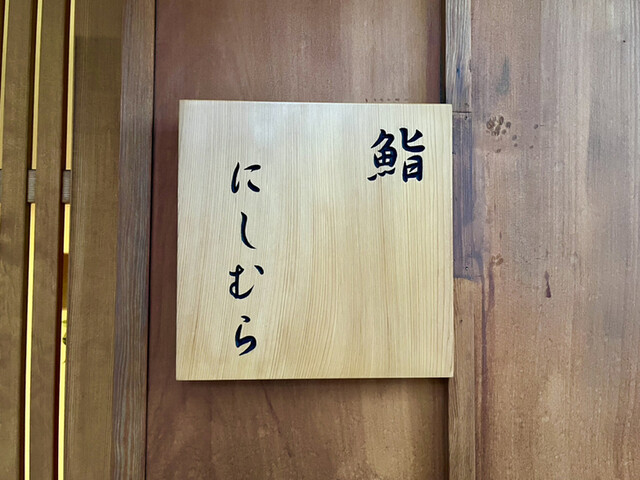 鮨
にしむら